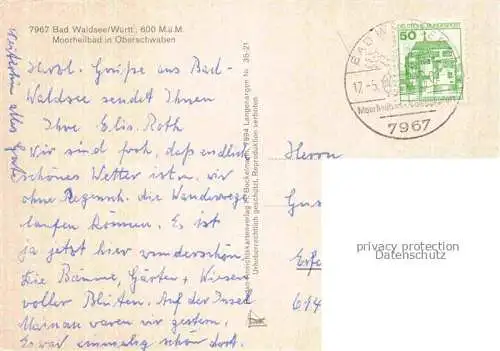 7967 Bad Waldsee/Württ., 600 M.ü.M.
Moorheilbad in Oberschwaben
Herzl. Grüße aus Bad-
Waldsee sendet Ihnen
Ihre Elis. Roth
Wir sind froh, daß endlich
schönes Wetter ist u. wir
ohne Regensch. die Wanderwege
laufen können. Es ist
ja jetzt hier wunderschön.
Die Bäume, Gärten u. Wiesen
voller Blüten. Auf der Insel
Mainau waren wir gestern.
Es war einmalig schön dort.
Weiterhin alles Gute
Bockelmann, 7994 Langenargen Nr. 35-21
Urheberrechtlich geschützt, Reproduktion verboten
DEUTSCHE BUNDESPOST
50
BAD W
17.-5.
Moorheilbad
7967
Herrn
Gus
614
privacy protection
Datenschutz